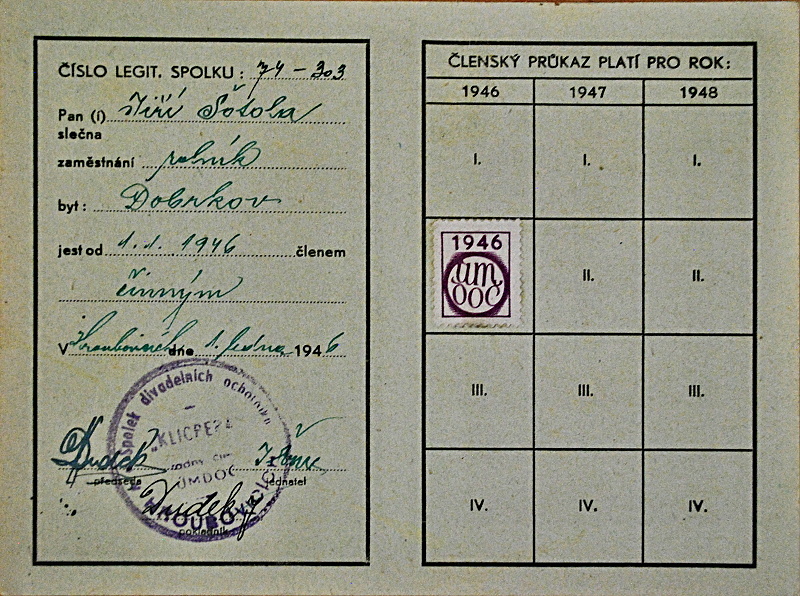 ČÍSLO LEGIT. SPOLKU: 74-303
Pan (í) Jiří Šotola
slečna
zaměstnání rolník
byt: Dobrkov
jest od 1.1.1946 členem
činným
V Hroubovicích dne 1. ledna 1946
spolek divadelních ochotníků
"KLICPERA"
ÚMDOČ
HROUBOVICÍCH
předseda
jednatel
Dudek
pokladník
ČLENSKÝ PRŮKAZ PLATÍ PRO ROK:
1946 1947 1948
I. I. I.
1946
ÚM
DOČ
II. II.
III. III. III.
IV. IV. IV.